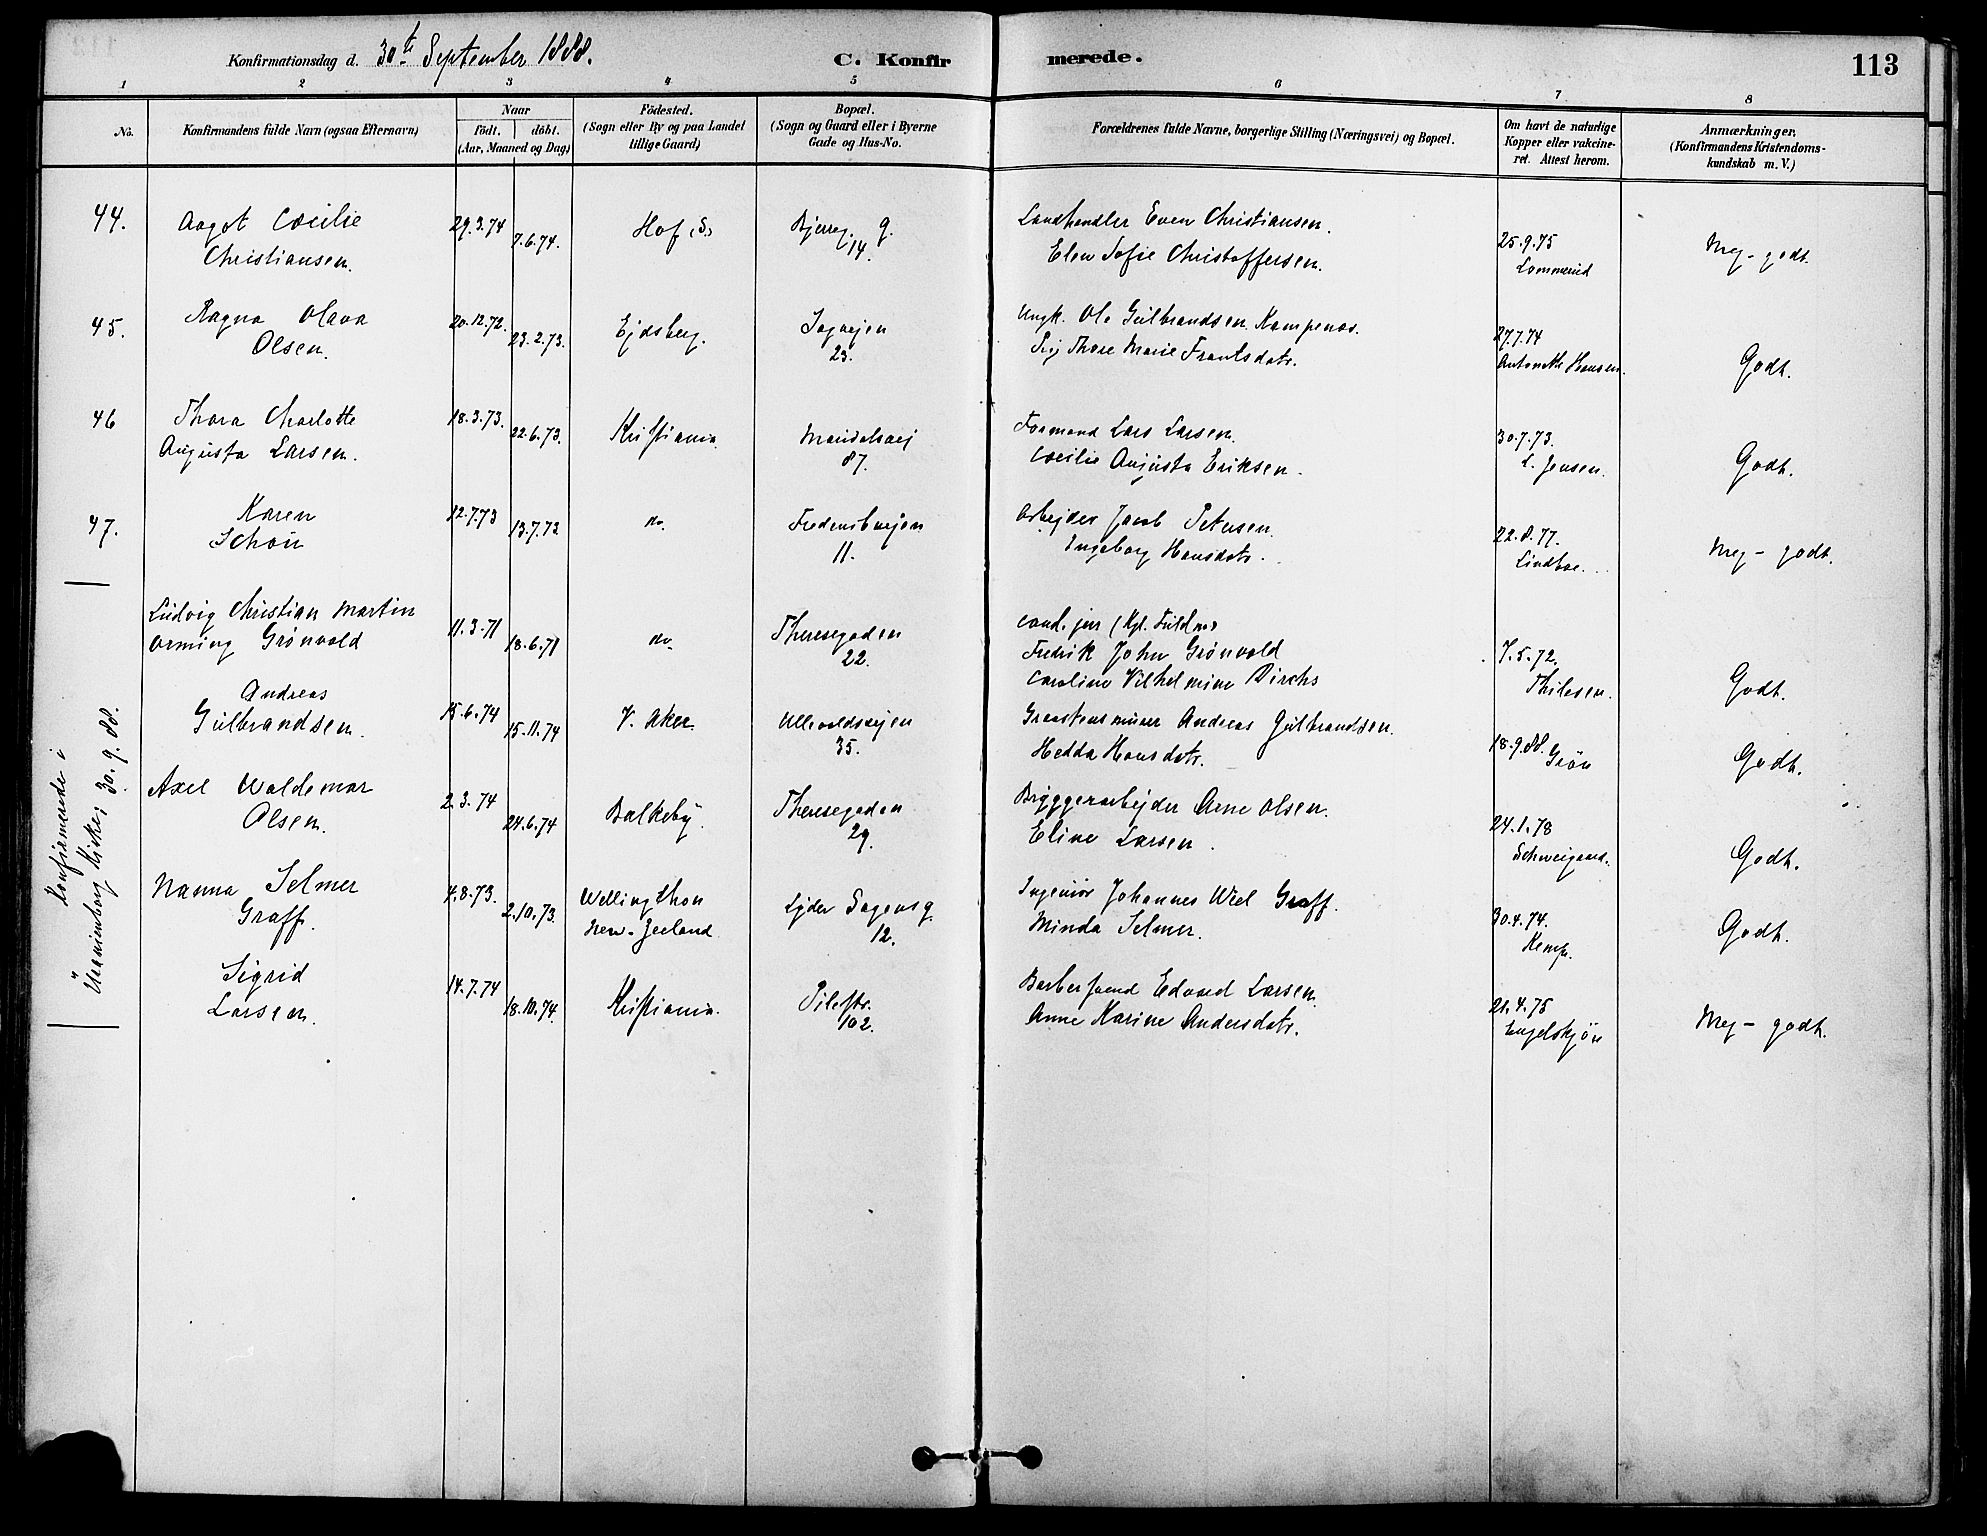 Konfirmationsdag d. 30te September 1888.
C. Konfirmerede.
113
1 2 3 4 5 6 7 8
No.
Konfirmandens fulde Navn (ogsaa Efternavn)
Naar
födt. döbt.
(Aar, Maaned og Dag)
Födested.
(Sogn eller By og paa Landet
tillige Gaard)
Bopæl.
(Sogn og Gaard eller i Byerne
Gade og Hus-No.
Forældrenes fulde Navne, borgerlige Stilling (Næringsvei) og Bopæl.
Om havt de naturlige
Kopper eller vakcine-
ret. Attest herom.
Anmærkninger.
(Konfirmandens Kristendoms-
kundskab m. V.)
44. Aagot Cæcilie
Christiansen.
29.3.74 7.6.74. Hof, S. Bjerreg. g.
14.
Landhandler Even Christiansen.
Elen Sofie Christoffersen.
25.9.75
Lommerud
Meg- godt.
45. Ragna Olava
Olsen.
20.12.72. 23.2.73. Ejdsberg. Sagvejen
23.
Ungk. Ole Gulbrandsen Kampenæs.
Pig Thore Marie Frantsdatr.
27.7.74
Antonette Hansen.
Godt.
46 Thora Charlotte
Augusta Larsen.
18.3.73. 22.6.73. Kristiania. Maridalsvej
87.
Formand Lars Larsen.
Cæcilie Augusta Eriksen.
30.7.73.
L. Jensen.
Godt.
47. Karen
Schou
12.7.73 13.7.73. do. Fredensborgvejen
11.
Arbejder Jacob Petersen.
Engeborg Hansdatr.
22.8.77.
Lindboe.
Meg- godt.
Konfirmerede i
Uranienborg Kirke, 30.9.88.
Ludvig Christian Martin
Arming Grønvold
11.3.71 18.6.71 do. Theresegaden
22.
cand. jur (Kgl. Fuldm)
Fredrik John Grønvold
Caroline Vilhelmine Dirchs
7.5.72.
Thilesen.
Godt.
Andreas
Gulbrandsen.
15.6.74 15.11.74 V. Aker. Ullevoldsvejen
35.
Graastensmurer Andreas Gulbrandsen.
Hedda Hansdatr.
18.9.88.
Grøn
Godt.
Axel Waldemar
Olsen.
2.3.74 24.6.74 Balkeby. Theresegaden
29.
Bryggerarbejder Arne Olsen.
Eline Larsen.
24.1.78
Schweigaard.
Godt.
Nanna Selmer
Graff.
4.8.73. 2.10.73. Wellingthon
New-Zeeland
Lyder Sagensg.
12.
Ingeniør Johannes Wiel Graff.
Minda Selmer.
30.4.74.
Kemp.
Godt.
Sigrid
Larsen.
14.7.74 18.10.74. Kristiania. Pilestr.
102.
Barbersvend Edvard Larsen.
Anne Karine Andersdatr.
21.4.75
Engelskjøn
Meg- godt.